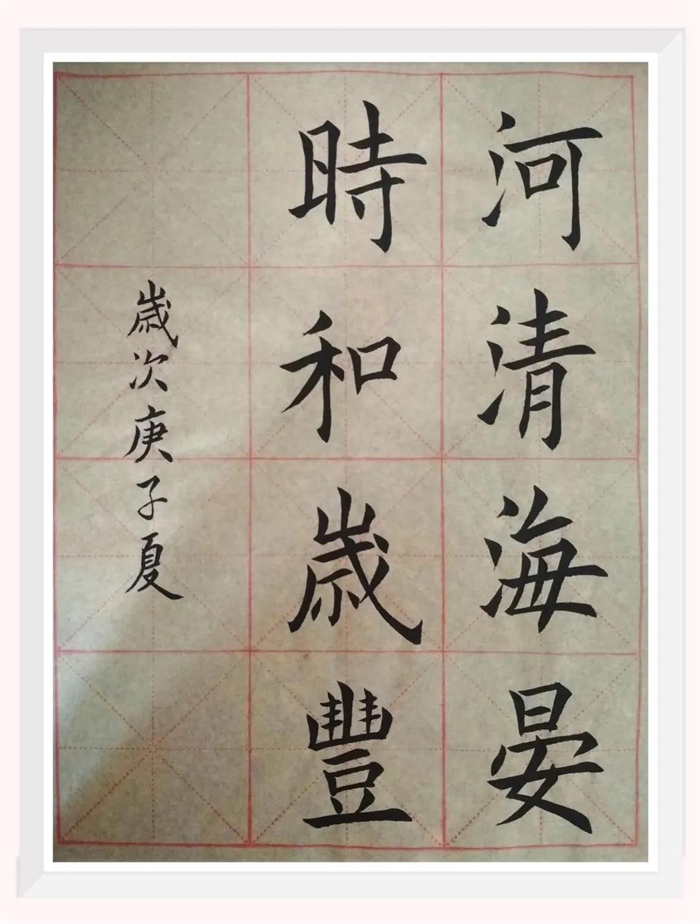 河清海晏
時和歲豐
歲次庚子夏